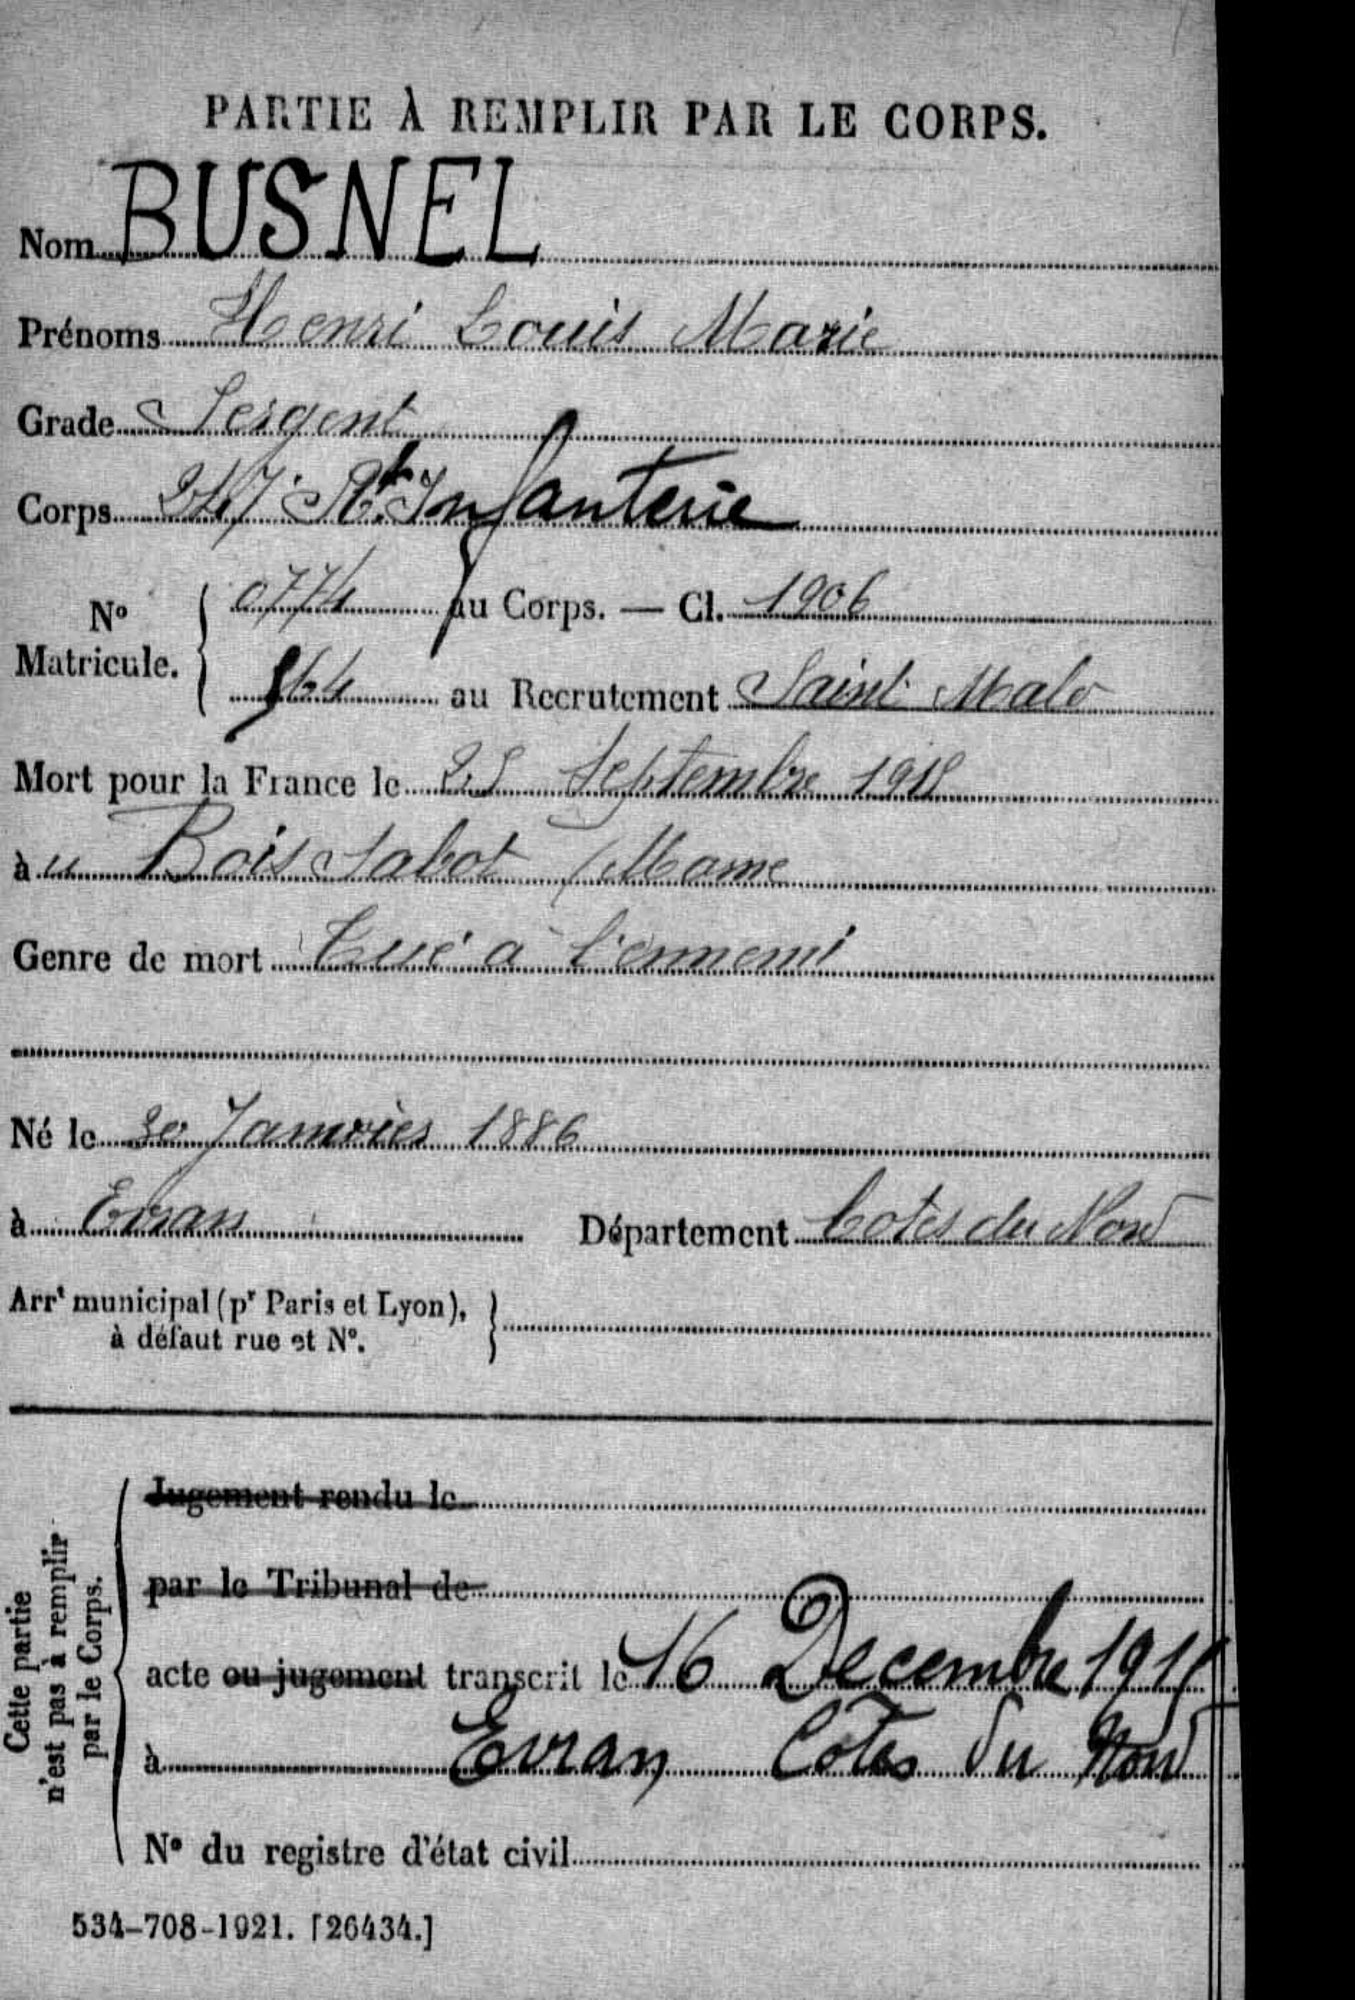 PARTIE À REMPLIR PAR LE CORPS.
Nom BUSNEL
Prénoms Henri Louis Marie
Grade Sergent
Corps 247e Rt. Infanterie
No Matricule. { 0774 au Corps. — Cl. 1906
564 au Recrutement Saint Malo
Mort pour la France le 25 Septembre 1915
à u Bois Sabot (Marne
Genre de mort Tué à l'ennemi
Né le 30 Janvier 1886
à Evran Département Cotes du Nord
Arrt municipal (pr Paris et Lyon), }
à défaut rue et No.
Cette partie
n'est pas à remplir
par le Corps.
Jugement rendu le
par le Tribunal de
acte ou jugement transcrit le 16 Decembre 1915
à Evran Côtes du Nord
No du registre d'état civil
534-708-1921. [26434.]